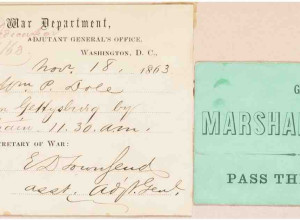 War Department,
ADJUTANT GENERAL'S OFFICE,
WASHINGTON, D. C.,
Nov. 18, 1863
Wm. P. Dole
Gettysburg by
11.30. a.m.
SECRETARY OF WAR:
E D Townsend
asst. Adjt. Genl.
G
MARSHA
PASS TH